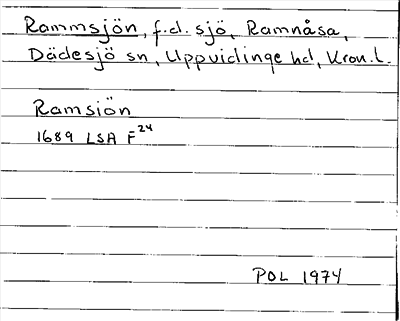 Rammsjön, f.d. sjö, Ramnåsa,
Dädesjö sn, Uppvidinge hd, Kron. l.
Ramsiön
1689 LSA F 24
POL 1974